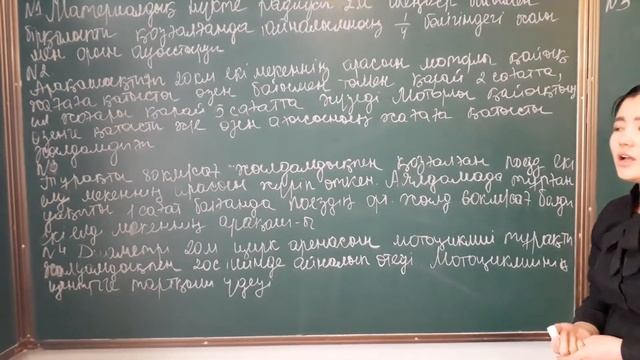 N1 Материалдық нүкте радиусы 2м шеңбер бойымен
бірқалыпты қозғалғанда айналымның 1/4 бөлігіндегі жолы
мен орын ауыстыруы
N2
Арақашықтығы 20 км екі мекеннің арасын моторлы қайық
жағаға қатысты өзен бойымен төмен қарай 2 сағатта,
ал жоғары қарай 5 сағатта жүзеді Моторлы қайықтың
өзенге қатысты және өзен ағысының жағаға қатысты
жылдамдығы
N3
Тұрақты 80км/сағ жылдамдықпен қозғалған поезд екі
елді мекеннің арасын жүріп өткен. Аялдамада тұрған
уақыты 1 сағат болғанда поездің ор. жылд 60км/сағ болды
екі елді мекеннің арақаш-ғы
N4 Диаметрі 20м цирк аренасын мотоциклші тұрақты
жылдамдықпен 20с ішінде айналып өтеді Мотоциклшінің
центрге тартқыш үдеуі
N3